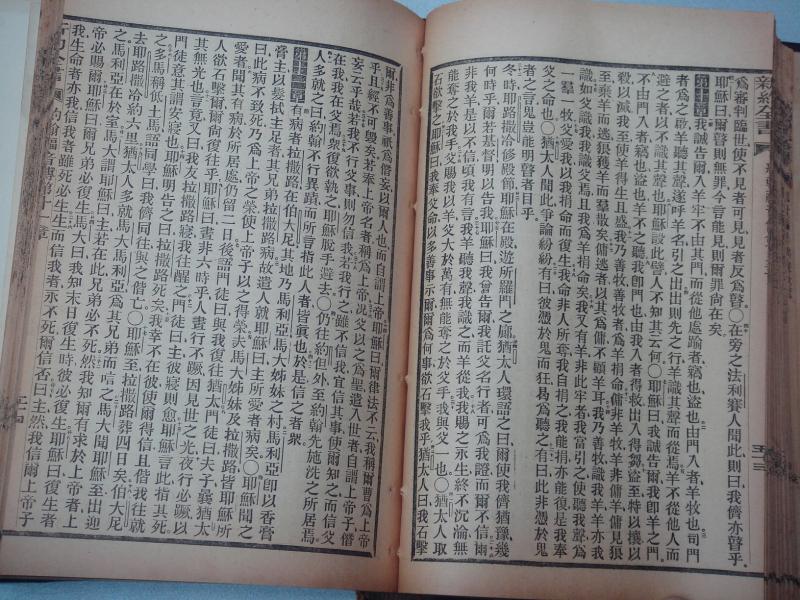 新約全書
爲審判臨世使不見者可見見者反爲瞽○在旁之法利賽人聞此則曰我儕亦瞽乎
耶穌曰爾瞽則無罪今言能見則爾罪尚在矣
第十章我誠告爾入羊牢不由其門而從他處踰者竊也盜也由門入者羊牧也司門
者爲之啟羊聽其聲遂呼羊名引之出出則先之行羊識其聲而從焉羊不從他人而
避之者以不識其聲也耶穌設此譬人不知其云何○耶穌曰我誠告爾我卽羊之門
不由門入者竊也盜也羊不之聽我卽門也由我入者得救出入得芻盜至特以攘以
殺以滅我至使羊得生且盛我乃善牧善牧者爲羊捐命傭非羊牧羊非傭羊傭見狼
至棄羊而逃狼獲羊而羣散矣傭逃者以其爲傭不顧羊耳我乃善牧識我羊羊亦我
識如父識我我識父焉且我爲羊捐命矣我又有羊非此牢者我當引之使聽我聲爲
一羣一牧父愛我以我捐命而復生我命非人所奪我自捐之我能捐亦能復是我奉
父之命也○猶太人聞此爭論紛紛有曰彼憑於鬼而狂曷爲聽之有曰此非憑於鬼
者之言鬼豈能明瞽者目乎
冬時耶路撒冷修殿節耶穌在殿遊所羅門之廊猶太人環語之曰爾使我儕猶豫幾
何時乎爾若基督明以告我耶穌曰我曾告爾我託父名行者可爲我證而爾不信爾
非我羊是以不信頃我有言我羊聽我聲我識之而羊從我我賜之永生終不沉淪無
能奪之於我手父賜我以羊父大於萬有無能奪之於父手我與父一也○猶太人取
石欲擊之耶穌曰我奉父命以多善事示爾爾爲何事欲石擊我乎猶太人曰我石擊
爾非爲善事祇爲僭妄以爾人也而自謂上帝耶穌曰爾律法不云我稱爾曹爲上帝
乎且經不可毀矣若奉上帝名者稱爲上帝況父以之爲聖遣入世者自謂上帝子僭
妄云乎哉若我不行父事則勿信我若行之雖不信我宜信其事使爾知之而信父
在我我在父焉衆復欲執之耶穌脫手避去○仍往約但外至約翰先施洗之所居焉
人多就之曰約翰不行異蹟而所言指此人者皆眞也於是信之者衆
第十一章有病者拉撒路在伯大尼其地乃馬利亞馬大姊妹之村馬利亞卽以香膏
膏主以髮拭主足者其兄弟拉撒路病故遣人就耶穌曰主所愛者病矣○耶穌聞之
曰此病不致死乃爲上帝之榮使上帝子以之得榮夫馬大姊妹及拉撒路皆耶穌所
愛者聞其有病於所居處仍留二日後語門徒曰我與我復往猶太門徒曰夫子曩猶太
人欲石擊爾爾尚復往乎耶穌曰晝非六時乎人晝行不蹶因見世之光夜行必蹶以
其無光也言竟又曰我友拉撒路寢我往醒之門徒曰主彼寢則愈耶穌言此指其死
門徒意其謂安寢也耶穌明告之曰拉撒路死矣我幸不在彼使爾得信且偕我往就
之多馬稱低土馬語同學曰我儕同往與之偕亡○耶穌至拉撒路葬四日矣伯大尼
去耶路撒冷約六里猶太人多就馬大馬利亞爲其兄弟而唁之馬大聞耶穌至出迎
之馬利亞在於室馬大謂耶穌曰主若在此兄弟必不死然我知爾有求於上帝者上
帝必賜爾耶穌曰爾兄弟必復生馬大曰我知末日復生時彼必復生耶穌曰復生者
我生命者亦我信我者雖死必生生而信我者永不死爾信否曰主然我信爾上帝子
約翰福音傳第十一章
二十四